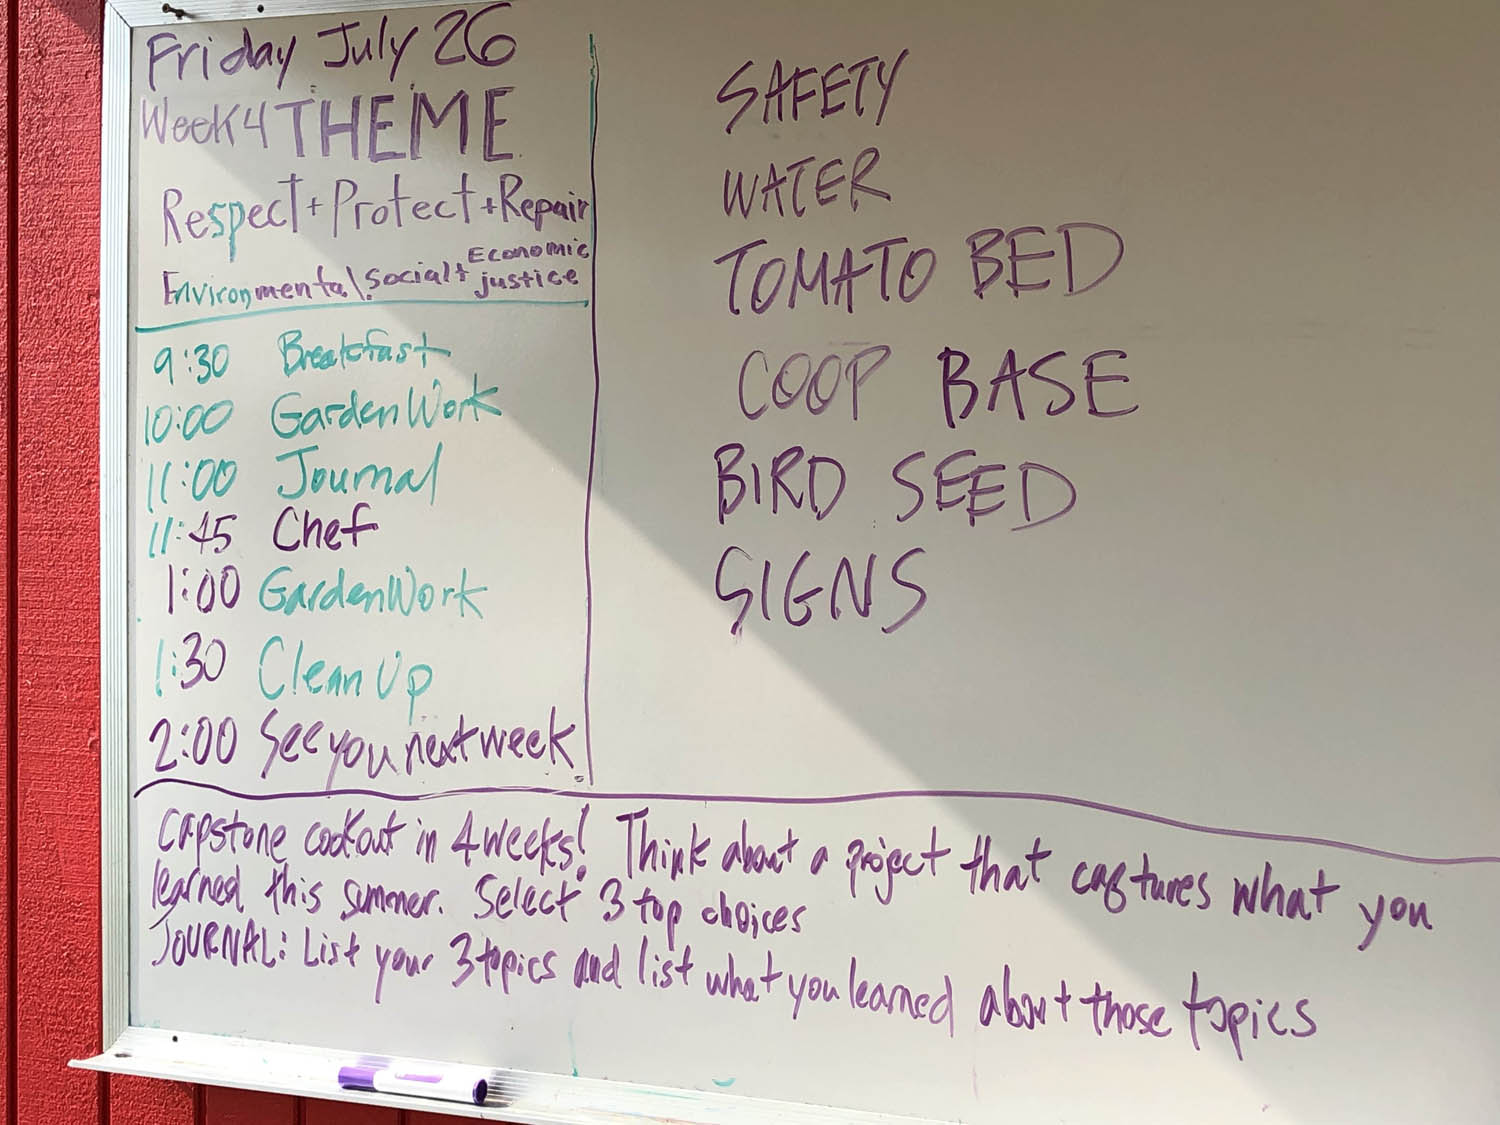 Friday July 26
Week 4 THEME
Respect + Protect + Repair
Environmental, social + Economic justice
9:30 Breakfast
10:00 Garden Work
11:00 Journal
11:45 Chef
1:00 Garden Work
1:30 Clean Up
2:00 See you next week
SAFETY
WATER
TOMATO BED
COOP BASE
BIRD SEED
SIGNS
Capstone cookout in 4 weeks! Think about a project that captures what you
learned this summer. Select 3 top choices
JOURNAL: List your 3 topics and list what you learned about those topics